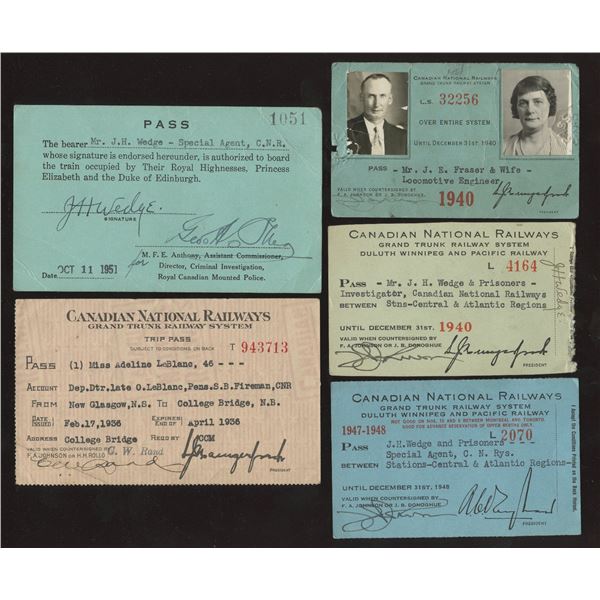 PASS
1051
The bearer Mr. J.H. Wedge - Special Agent, C.N.R.
whose signature is endorsed hereunder, is authorized to board
the train occupied by Their Royal Highnesses, Princess
Elizabeth and the Duke of Edinburgh.
JHWedge.
SIGNATURE
for M. F. E. Anthony, Assistant Commissioner,
Director, Criminal Investigation,
Royal Canadian Mounted Police.
Date OCT 11 1951
CANADIAN NATIONAL RAILWAYS
GRAND TRUNK RAILWAY SYSTEM
TRIP PASS
SUBJECT TO CONDITIONS ON BACK
T 943713
PASS (1) Miss Adeline LeBlanc, 46 - - -
ACCOUNT Dep.Dtr.late O.LeBlanc,Pens.S.B.Fireman,CNR
FROM New Glasgow,N.S. To College Bridge, N.B.
DATE ISSUED Feb.17,1936 EXPIRES END OF April 1936
ADDRESS College Bridge REQ BY CCM
VALID WHEN COUNTERSIGNED BY
F. A JOHNSON OR H.H. ROLLO
C. W. Rand
PRESIDENT
CANADIAN NATIONAL RAILWAYS
GRAND TRUNK RAILWAY SYSTEM
L.S. 32256
OVER ENTIRE SYSTEM
UNTIL DECEMBER 31ST, 1940
PASS - Mr. J. E. Fraser & Wife -
Locomotive Engineer
VALID WHEN COUNTERSIGNED BY
F. A. JOHNSON OR J. B. DONOGHUE
1940
PRESIDENT
CANADIAN NATIONAL RAILWAYS
GRAND TRUNK RAILWAY SYSTEM
DULUTH WINNIPEG AND PACIFIC RAILWAY
L 4164
PASS - Mr. J. H. Wedge & Prisoners -
Investigator, Canadian National Railways
BETWEEN Stns-Central & Atlantic Regions
UNTIL DECEMBER 31ST. 1940
VALID WHEN COUNTERSIGNED BY
F. A. JOHNSON OR J. B. DONOGHUE
PRESIDENT
JHWedge
CANADIAN NATIONAL RAILWAYS
GRAND TRUNK RAILWAY SYSTEM
DULUTH WINNIPEG AND PACIFIC RAILWAY
1947-1948
L 2070
PASS J.H.Wedge and Prisoners
Special Agent, C. N. Rys.
BETWEEN Stations-Central & Atlantic Regions-
UNTIL DECEMBER 31ST, 1948
VALID WHEN COUNTERSIGNED BY
F. A. JOHNSON OR J. B. DONOGHUE
PRESIDENT
I Accept the Conditions Printed on the Back Hereof.